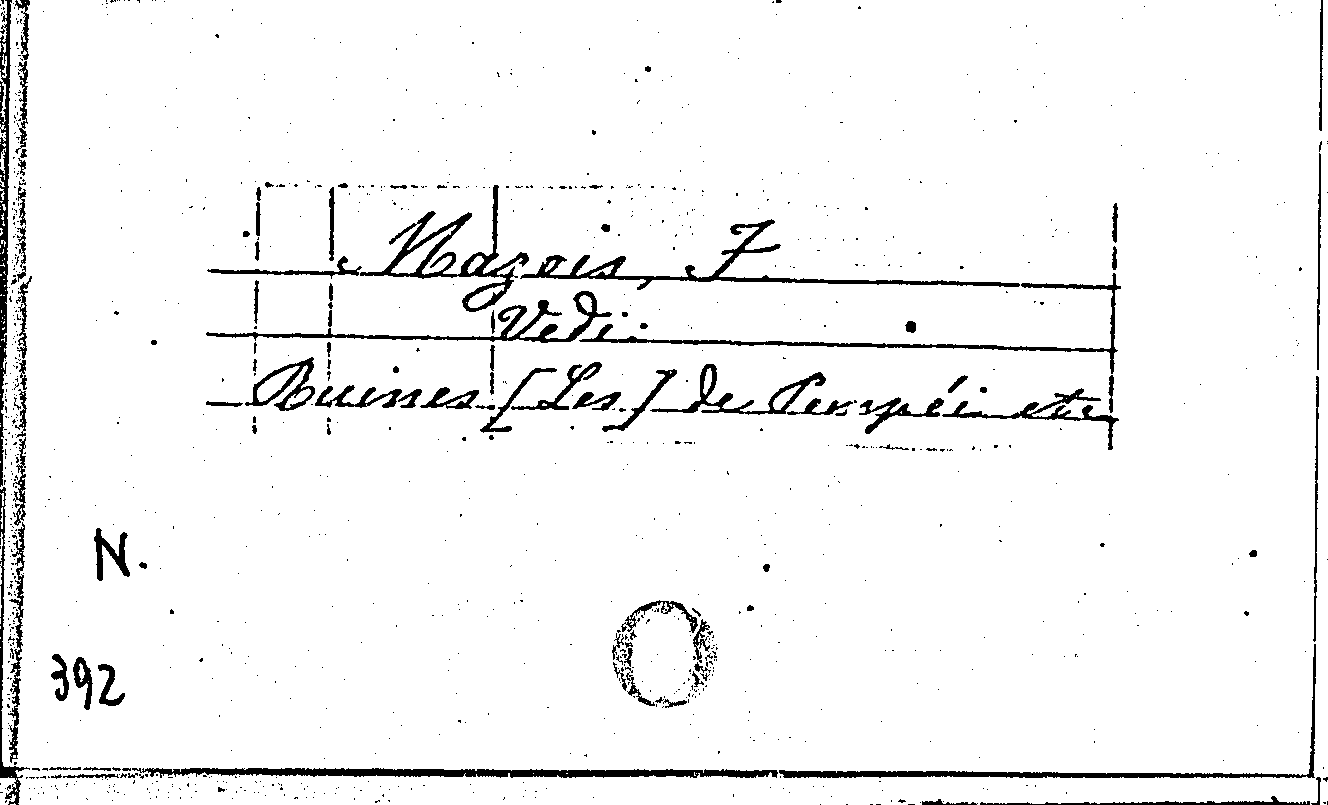 Mazois, F.
Vedi:
Ruines [Les] de Pompéi etc
N.
392